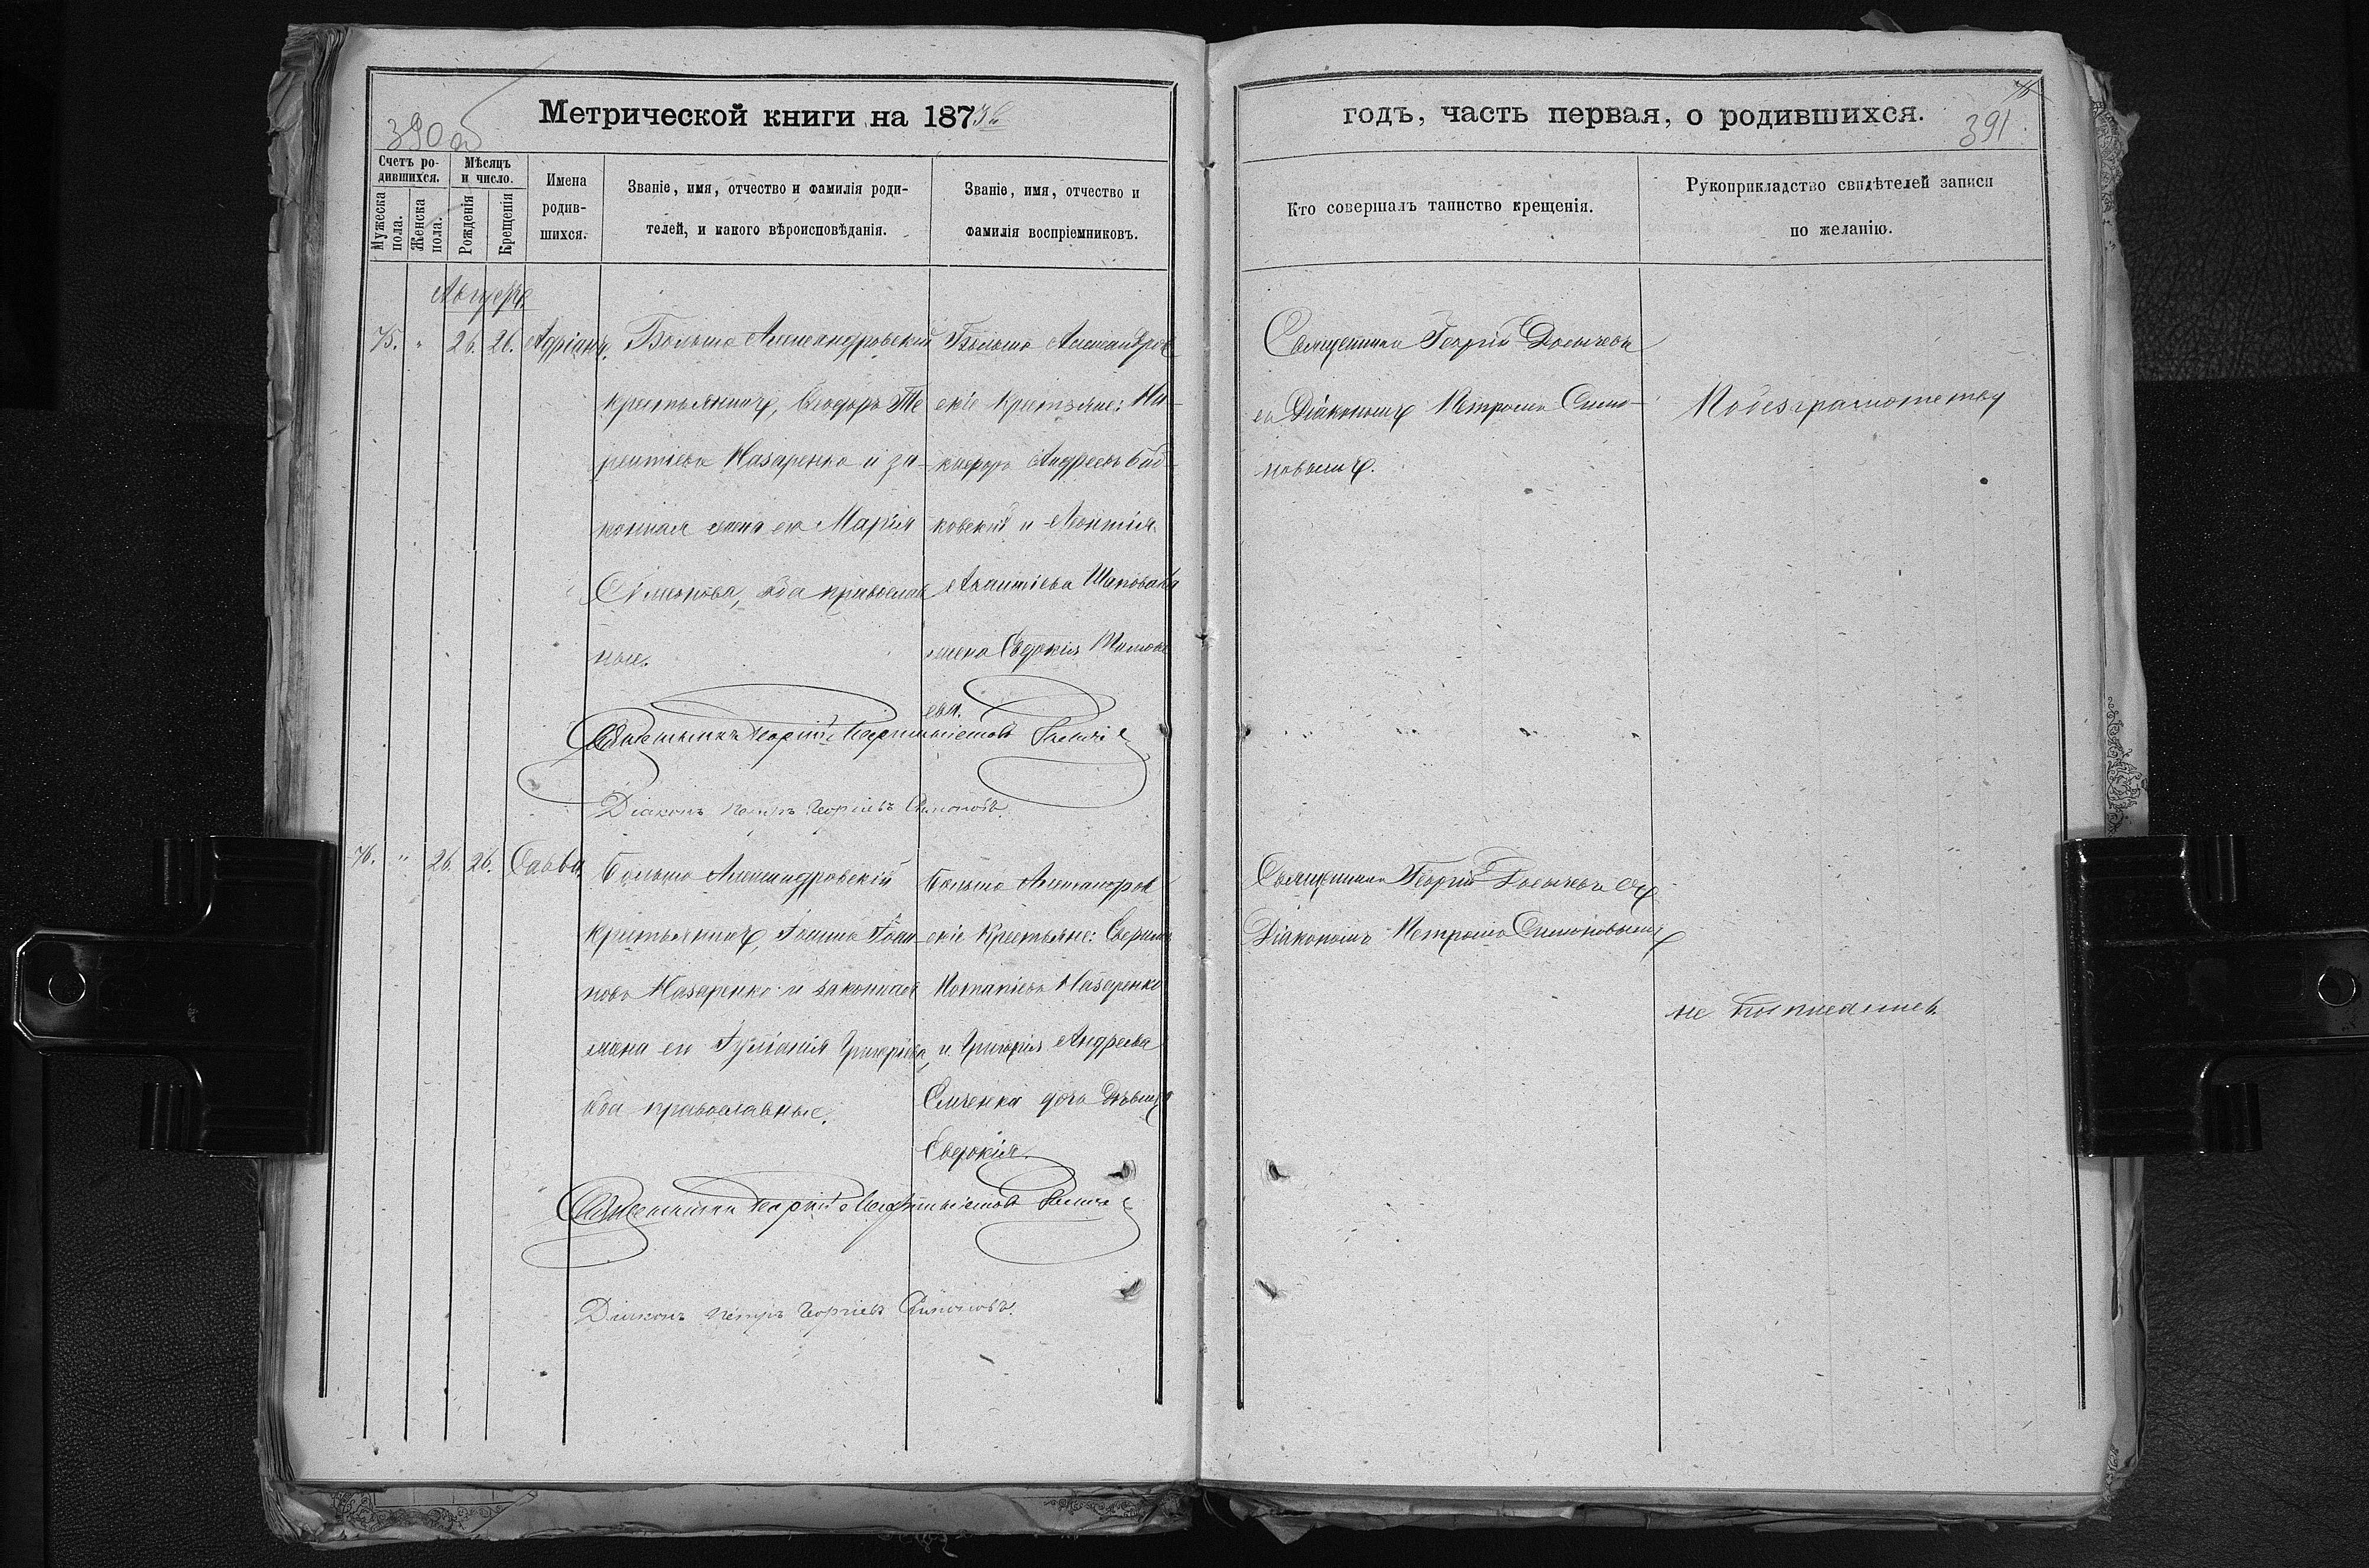 390 об
Метрической книги на 1873й
Счетъ родившихся.
Мужеска пола.
Женска пола.
Мѣсяцъ и число.
Рожденія
Крещенія
Имена родившихся.
Званіе, имя, отчество и фамилія роди-
телей, и какого вѣроисповѣданія.
Званіе, имя, отчество и
фамилія воспріемниковъ.
Августъ
75. " 26. 26. Адріанъ.
Больше Александровскій
крестьянинъ, Ѳеодоръ Те
рентіевъ Назаренко и за-
конная жена его Марія
Симонова, оба православ
ные.
Больше Александров
скіе Крестьяне: Ни-
кифоръ Андреевъ
ковскій и Леонтія
Шаповала
жена Евдокія
ева.
Священникъ Георгій
Діаконъ Петръ Георгіевъ Симоновъ.
76. " 26. 26. Савва.
Больше Александровскій
Крестьянинъ, Іоаннъ Іоан-
новъ Назаренко и законная
жена его Іуліанія Григоріева,
оба православные.
Больше Александров
скіе Крестьяне:
Потапіевъ Назаренко
и Григорія Андреева
дочь Дѣвица
Евдокія.
Священникъ Георгій
Діаконъ Петръ Георгіевъ Симоновъ.
годъ, часть первая, о родившихся.
391.
Кто совершалъ таинство крещенія.
Рукоприкладство свидѣтелей записи
по желанію.
Священникъ Георгій
съ Діакономъ Петромъ Симо-
новымъ.
По безграмотству
Священникъ Георгій съ
Діакономъ Петромъ Симоновымъ
не